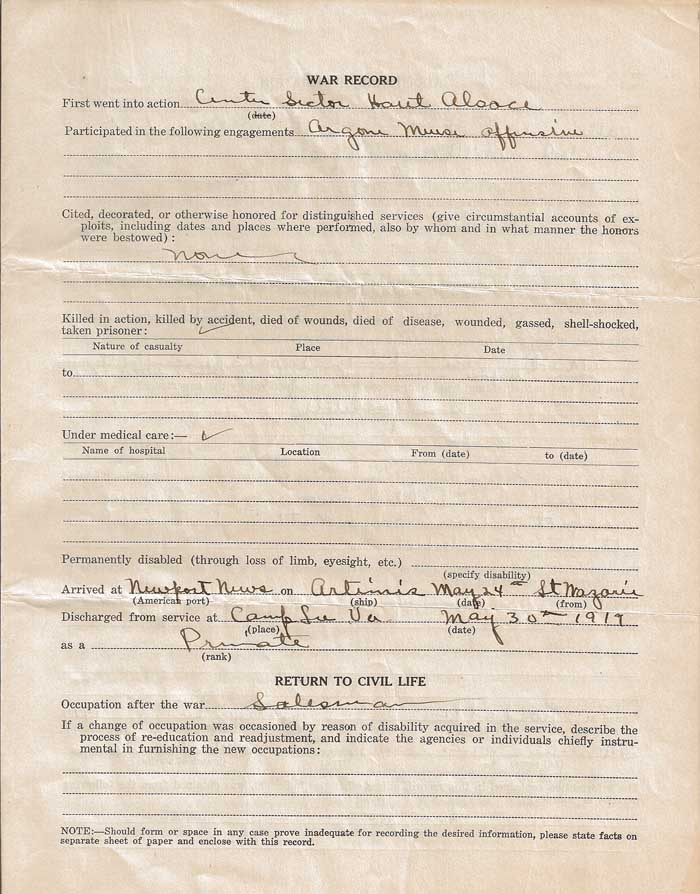 WAR RECORD
First went into action Center Sector Haut Alsace
(date)
Participated in the following engagements Argone Meuse offensive
Cited, decorated, or otherwise honored for distinguished services (give circumstantial accounts of ex-
ploits, including dates and places where performed, also by whom and in what manner the honors
were bestowed) :
None
Killed in action, killed by accident, died of wounds, died of disease, wounded, gassed, shell-shocked,
taken prisoner: ✓
Nature of casualty Place Date
to
Under medical care:— ✓
Name of hospital Location From (date) to (date)
Permanently disabled (through loss of limb, eyesight, etc.)
(specify disability)
Arrived at Newport News on Artimis May 24th St Nazarie
(American port) (ship) (date) (from)
Discharged from service at Camp Lee Va May 30th 1919
(place) (date)
as a Private
(rank)
RETURN TO CIVIL LIFE
Occupation after the war Salesman
If a change of occupation was occasioned by reason of disability acquired in the service, describe the
process of re-education and readjustment, and indicate the agencies or individuals chiefly instru-
mental in furnishing the new occupations:
NOTE:—Should form or space in any case prove inadequate for recording the desired information, please state facts on
separate sheet of paper and enclose with this record.